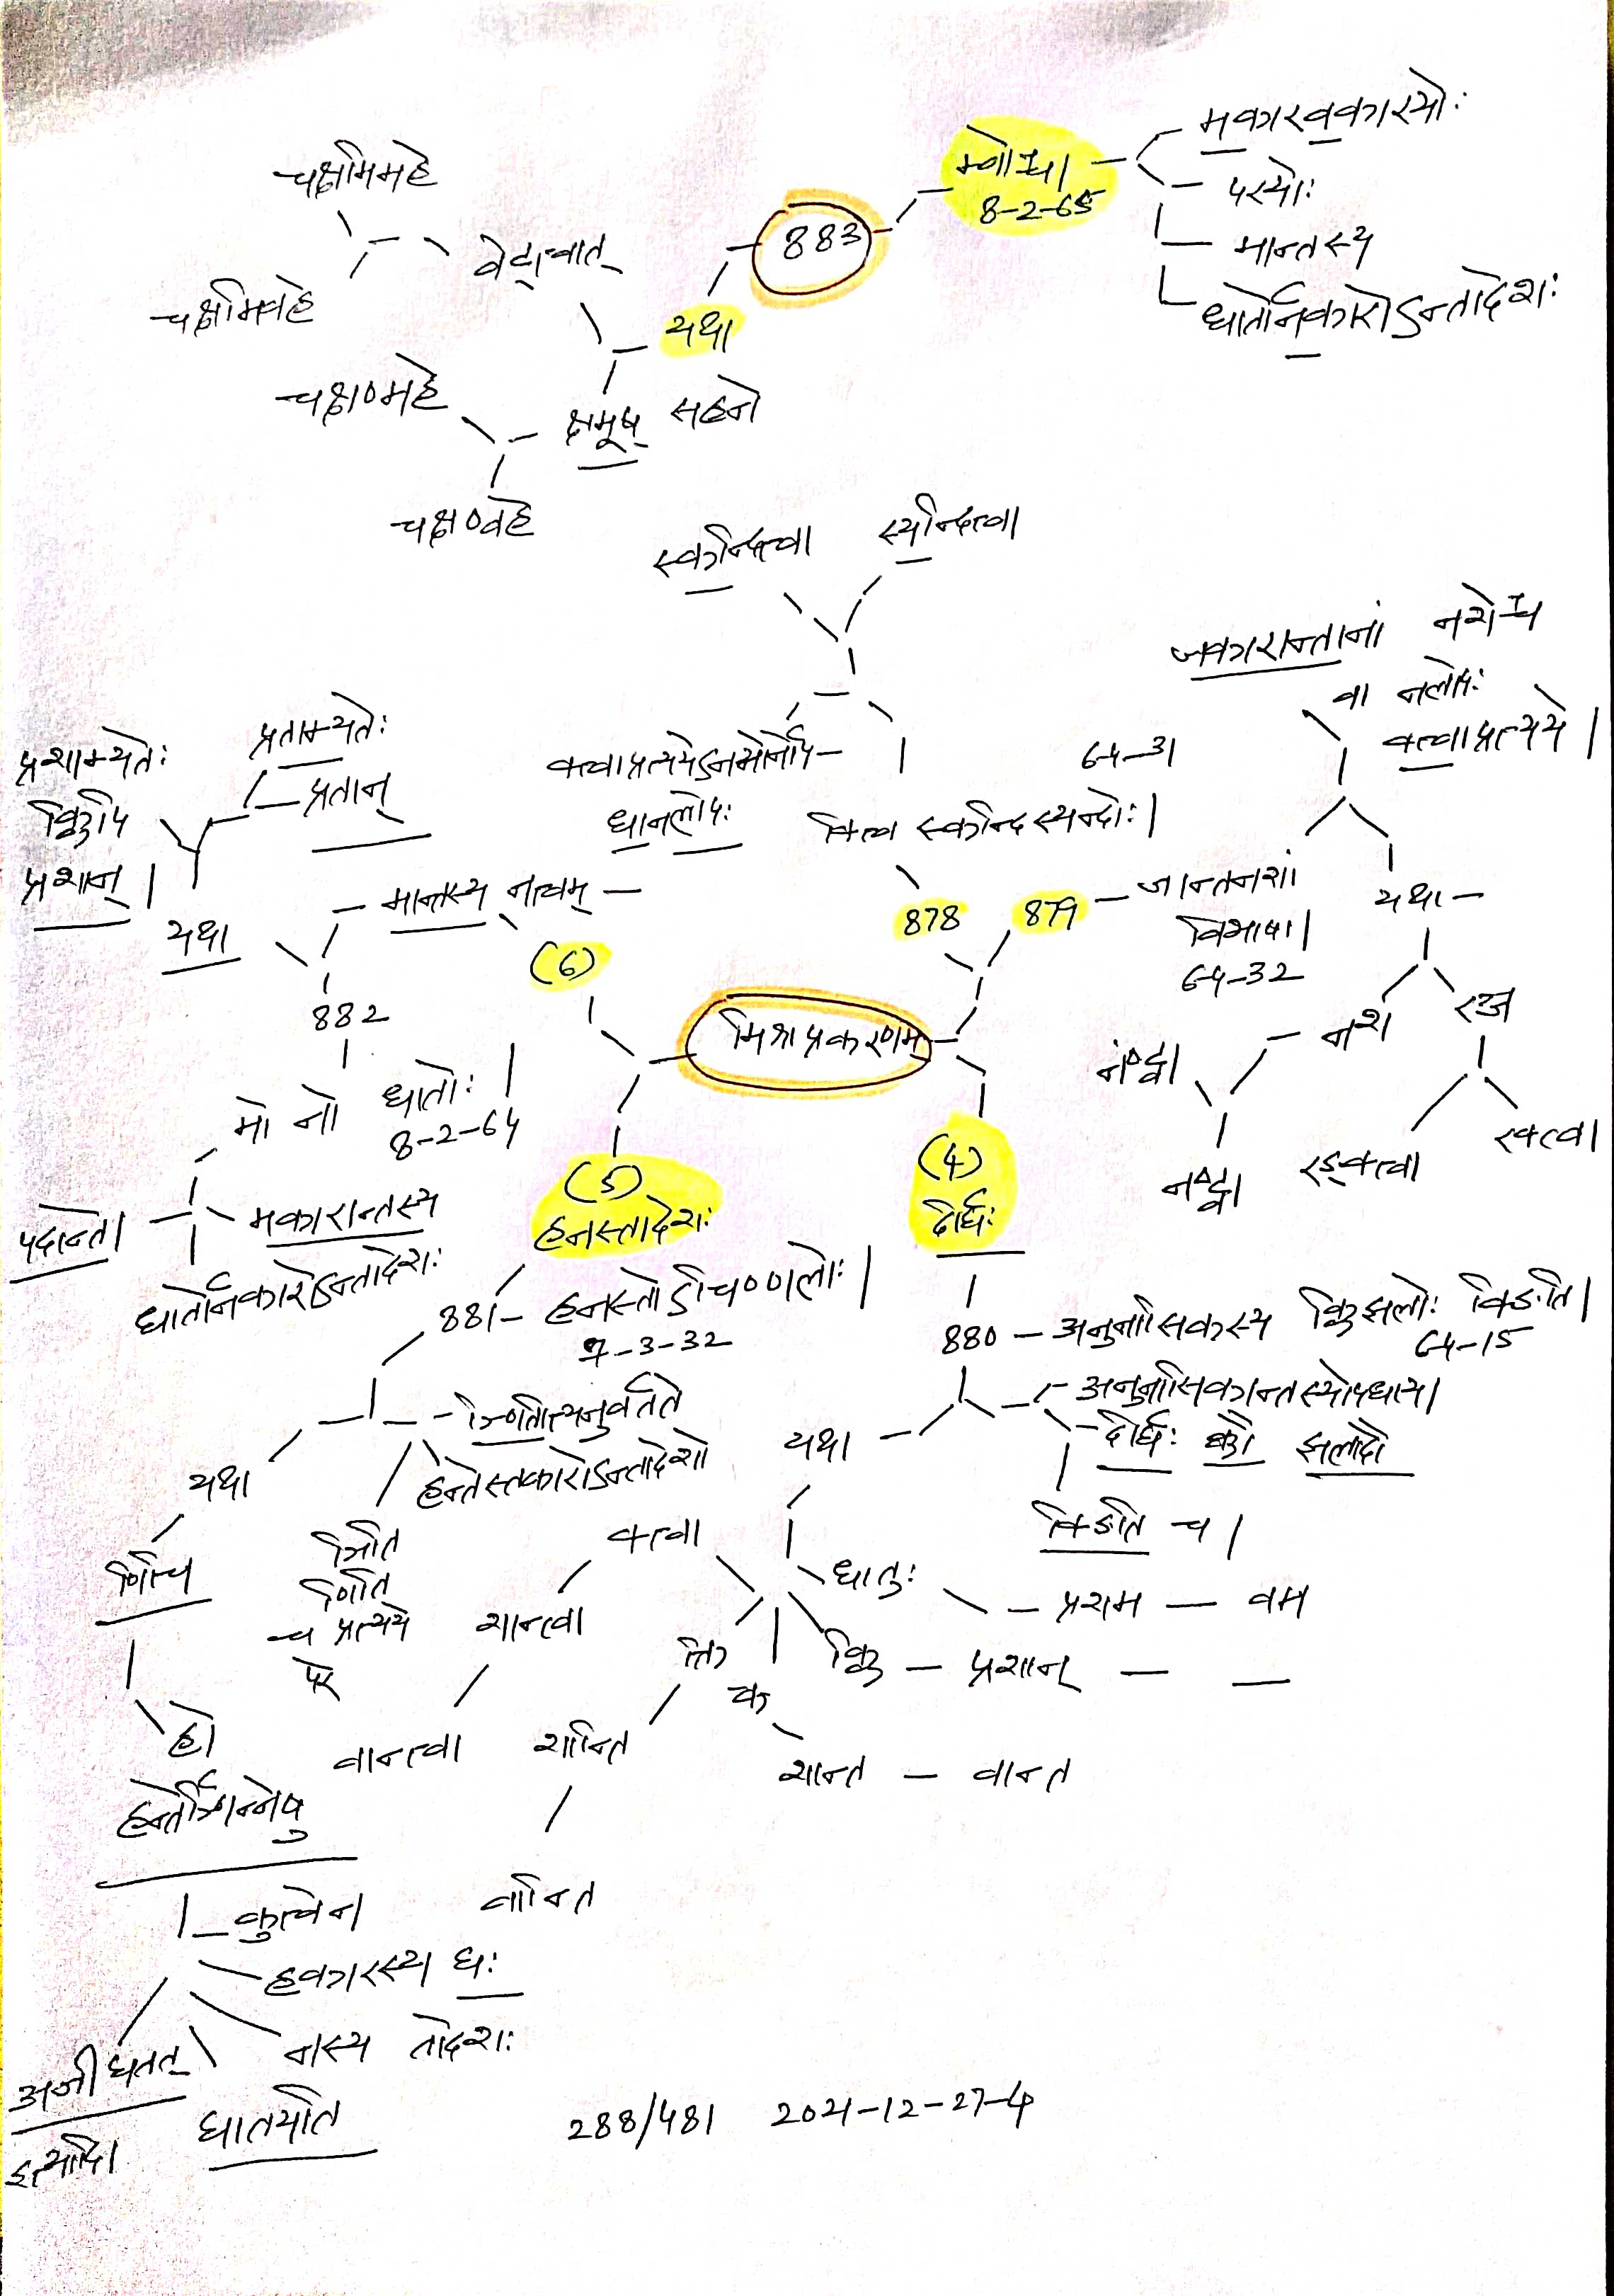 मकारवकारयोः
म्वोश्च।
8-2-65
परयोः
मान्तस्य
धातोर्नकारोऽन्तादेशः
883
यथा
चक्षमिमहे
वेट्त्वात्
चक्षमिवहे
चक्षण्महे
क्षमूष् सहने
चक्षण्वहे
स्कन्त्वा
स्यन्त्वा
जकारान्तानां नशेश्च
वा नलोपः
क्त्वाप्रत्यये।
क्त्वाप्रत्ययेऽनयोर्नोप-
धानलोपः
64-31
क्त्वि स्कन्दिस्यन्दोः।
878
879
जान्तनशां
विभाषा।
64-32
यथा
नश
रञ्ज
नंष्ट्वा
नष्ट्वा
रङ्क्त्वा
रक्त्वा
प्रशाम्यतेः
क्विपि
प्रशान्।
प्रताम्यतेः
प्रतान्
यथा
मान्तस्य नत्वम्
(6)
882
मो नो धातोः।
8-2-64
पदान्ते।
मकारान्तस्य
धातोर्नकारोऽन्तादेशः
मिश्रप्रकरणम्
(5)
हनस्तादेशः
(4)
दीर्घः
881- हनस्तोऽचिण्णलोः।
7-3-32
ञ्णितीत्यनुवर्तते
हन्तेस्तकारोऽन्तादेशो
ञिति
णिति
च प्रत्यये
परे
यथा
णिचि
हो
हन्तेर्ञ्णिन्नेषु
कुत्वेन
हकारस्य घः
नस्य तादेशः
अजीघतत्
इत्यादि।
घातयति
880 - अनुनासिकस्य क्विझलोः क्ङिति।
64-15
अनुनासिकान्तस्योपधाया
दीर्घः क्वौ झलादौ
क्ङिति च।
यथा
धातुः - प्रशम - वम
क्वि - प्रशान् - -
क्त्वा
शान्त्वा
वान्त्वा
क्तिन्
शान्ति
वान्ति
क्त
शान्त - वान्त
288/481 2021-12-27-4